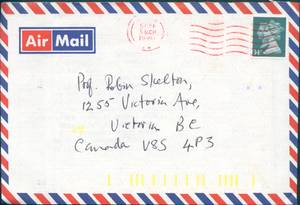 Air Mail
Prof. Robin Skelton,
1255 Victoria Ave,
Victoria BC
Canada V8S 4P3